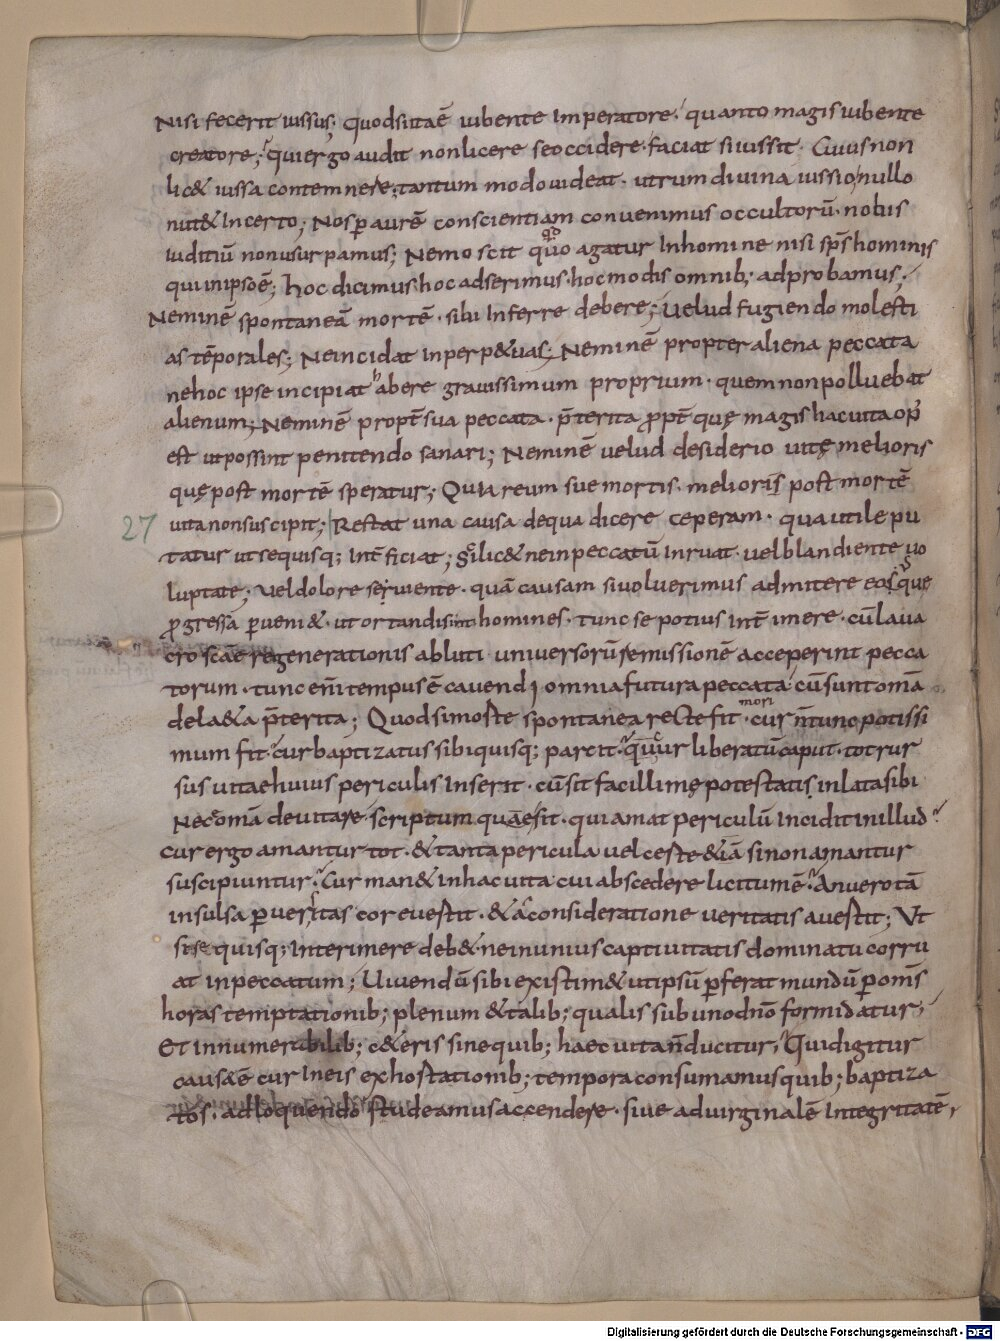 Nisi fecerit iussus; quodsiitaē iubente Imperatore. quanto magis iubente
creatore; qui ergo audit non licere se occidere. faciat si iussit. Cuius non
lic& iussa contemnere; tantum modo uideat. utrum diuina iussio nullo
nut& Incerto; Nos p aurē conscientiam conuenimus occultorū. nobis
iuditiū non usurpamus; Nemo scit quo agatur Inhomine nisi sp̄s hominis
qui in ipso ē; hoc dicimus. hoc adserimus. hoc modis omnib; adprobamus;
Neminē spontaneā mortē. sibi Inferre debere; Uelud fugiendo molesti
as tēporales; Ne incidat in perp&uas; Neminē propter aliena peccata
ne hoc ipse incipiat habere grauissimum proprium. quem non polluebat
alienum; Neminē propt̄ sua peccata. p̄terita ꝓpt̄ quę magis hac uita op̄
est ut possint penitendo sanari; Neminē uelud desiderio uitę melioris
quę post mortē speratur; Quia reum sue mortis. melioris post mortē
27 uita non suscipit; Restat una causa de qua dicere ceperam. qua utile pu
tatur ut se quisq; Int̄ficiat; s̄ lic& ne in peccatū Inruat. uel blandiente uo
luptate; Vel dolore seruiente. quā causam si uoluerimus admitere eo usque
ꝓgressa pueni&. ut ortandi sint homines. tunc se potius Int̄imere. cū laua
cro scāe regenerationis abluti uniuersorū remissionē acceperint pecca
torum. tunc em̄ tempus ē cauendi omnia futura peccata cū sunt omā
delaeta p̄terita; Quod si morte spontanea recte fit. cur n̄ tunc potissi
mum fit. cur baptizatus sibi quisq; parcit. cur liberatū caput. tot rur
sus uitae huius periculis Inserit. cū sit facillimę potestatis inlata sibi
Nec omā deuitare scriptum quae sit. qui amat periculū Incidit in illud
cur ergo amantur tot. & tanta pericula uel certe &iā si non amantur
suscipiuntur. Cur man& in hac uita cui abscedere licitum ē. An uero tā
insulsa peruersitas cor euestit. & a consideratione ueritatis auestit; Ut
si se quisq; Interimere deb& ne in unius captiuitatis dominatu corru
at in peccatum; Uiuendū sibi existim& ut ipsū pferat mundū p om̄s
horas temptationib; plenum & talib; qualis sub uno dn̄o formidatur;
Et Innumerabilib; c&eris sine quib; haec uita n̄ ducitur; Quid igitur
causae ē cur In eis exhostationib; tempora consumamus quib; baptiza
tos. adloquendo studeamus accendere. siue ad uirginalē Integritatē,
Digitalisierung gefördert durch die Deutsche Forschungsgemeinschaft - DFG